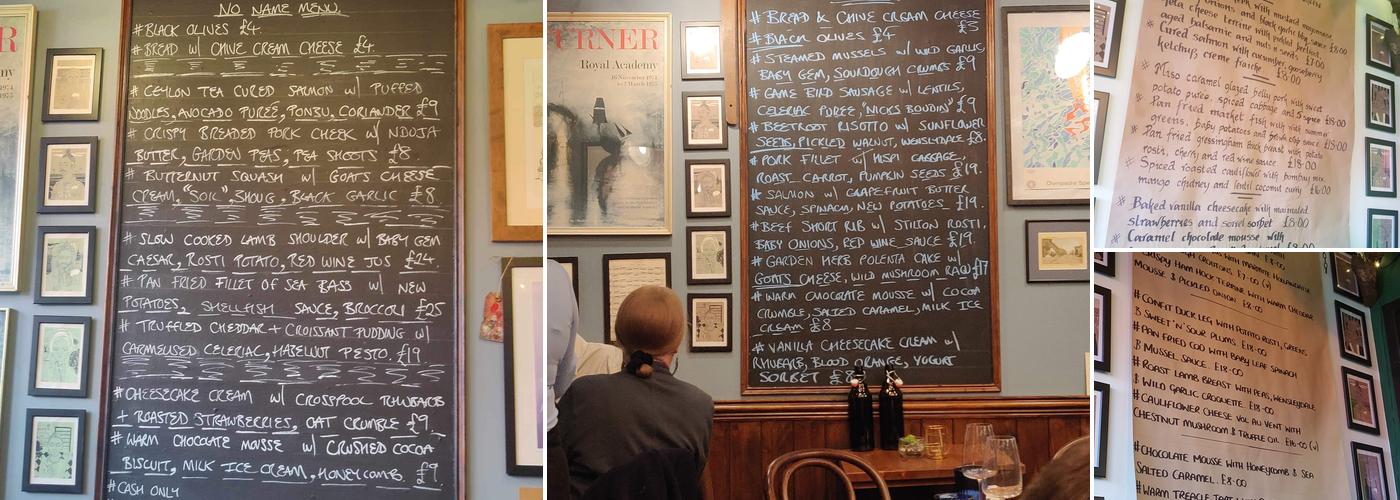 NO NAME MENU.
#BLACK OLIVES £4.
#BREAD W/ CHIVE CREAM CHEESE £4.
# CEYLON TEA CURED SALMON W/ PUFFED
NOODLES, AVOCADO PUREÉ, PONZU, CORIANDER £9
# CRISPY BREADED PORK CHEEK W/ NDUJA
BUTTER, GARDEN PEAS, PEA SHOOTS £8.
# BUTTERNUT SQUASH W/ GOATS CHEESE
CREAM, "SOIL", SHOUG, BLACK GARLIC £8.
# SLOW COOKED LAMB SHOULDER W/ BABY GEM
CAESAR, ROSTI POTATO, RED WINE JUS £24.
# PAN FRIED FILLET OF SEA BASS W/ NEW
POTATOES, SHELLFISH SAUCE, BROCCOLI £25
# TRUFFLED CHEDDAR + CROISSANT PUDDING W/
CARMELISED CELERIAC, HAZELNUT PESTO. £19.
#CHEESECAKE CREAM W/ CROSSPOOL RHUBARB
+ ROASTED STRAWBERRIES, OAT CRUMBLE £9.
# WARM CHOCOLATE MOUSSE W/ CRUSHED COCOA
BISCUIT, MILK ICE CREAM, HONEYCOMB. £9.
#CASH ONLY
TURNER
Royal Academy
16 November 1974
to 2 March 1975
# BREAD & CHIVE CREAM CHEESE
£3
# BLACK OLIVES £4
# STEAMED MUSSELS W/ WILD GARLIC,
BABY GEM, SOURDOUGH CRUMBS £9
# GAME BIRD SAUSAGE W/ LENTILS,
CELERIAC PUREE, "NICKS BOUDIN" £9
# BEETROOT RISOTTO W/ SUNFLOWER
SEEDS, PICKLED WALNUT, WENSLYDALE £8.
#PORK FILLET W/ HISPI CABBAGE,
ROAST CARROT, PUMPKIN SEEDS £19.
# SALMON W/ GRAPEFRUIT BUTTER
SAUCE, SPINACH, NEW POTATOES £19.
#BEEF SHORT RIB W/ STILTON ROSTI,
BABY ONIONS, RED WINE SAUCE £19.
#GARDEN HERB POLENTA CAKE W/
GOATS CHEESE, WILD MUSHROOM RAGU £17
#WARM CHOCOLATE MOUSSE W/ COCOA
CRUMBLE, SALTED CARAMEL, MILK ICE
CREAM £8
# VANILLA CHEESECAKE CREAM W/
RHUBARB, BLOOD ORANGE, YOGURT
SORBET £8
Olympische Spie
with mustard mayonnaise
onions and black garlic bbq sauce £8.00
feta cheese terrine with pickled beetroot
aged balsamic and nuts n' seeds £7.00
* Cured salmon with cucumber, gooseberry
ketchup, creme fraiche £8.00
* Miso caramel glazed belly pork with sweet
potato puree, spiced cabbage and 5 spice £18.00
* Pan fried market fish with summer
greens, baby potatoes and sauce £18.00
* Pan fried gressingham duck breast with potato
rosti, cherry and red wine sauce £18.00
* Spiced roasted cauliflower with bombay mix,
mango chutney and lentil coconut curry £16.00
* Baked vanilla cheesecake with marinated
strawberries and sorrel sorbet £8.00
* Caramel chocolate mousse with
£7.00 (V)
CRISPY HAM HOCK TERRINE WITH WARM CHEDDAR
MOUSSE & PICKLED ONION. £8.00
#CONFIT DUCK LEG WITH POTATO ROSTI, GREENS
& SWEET 'N' SOUR PLUMS. £18.00
#PAN FRIED COD WITH BABY LEAF SPINACH
& MUSSEL SAUCE. £18.00
#ROAST LAMB BREAST WITH PEAS, WENSLEYDALE
& WILD GARLIC CROQUETTE. £18.00
#CAULIFLOWER CHEESE VOL AU VENT WITH
CHESTNUT MUSHROOM & TRUFFLE OIL. £16.00 (V)
#CHOCOLATE MOUSSE WITH HONEYCOMB & SEA
SALTED CARAMEL. £8.00
#WARM TREACLE TART